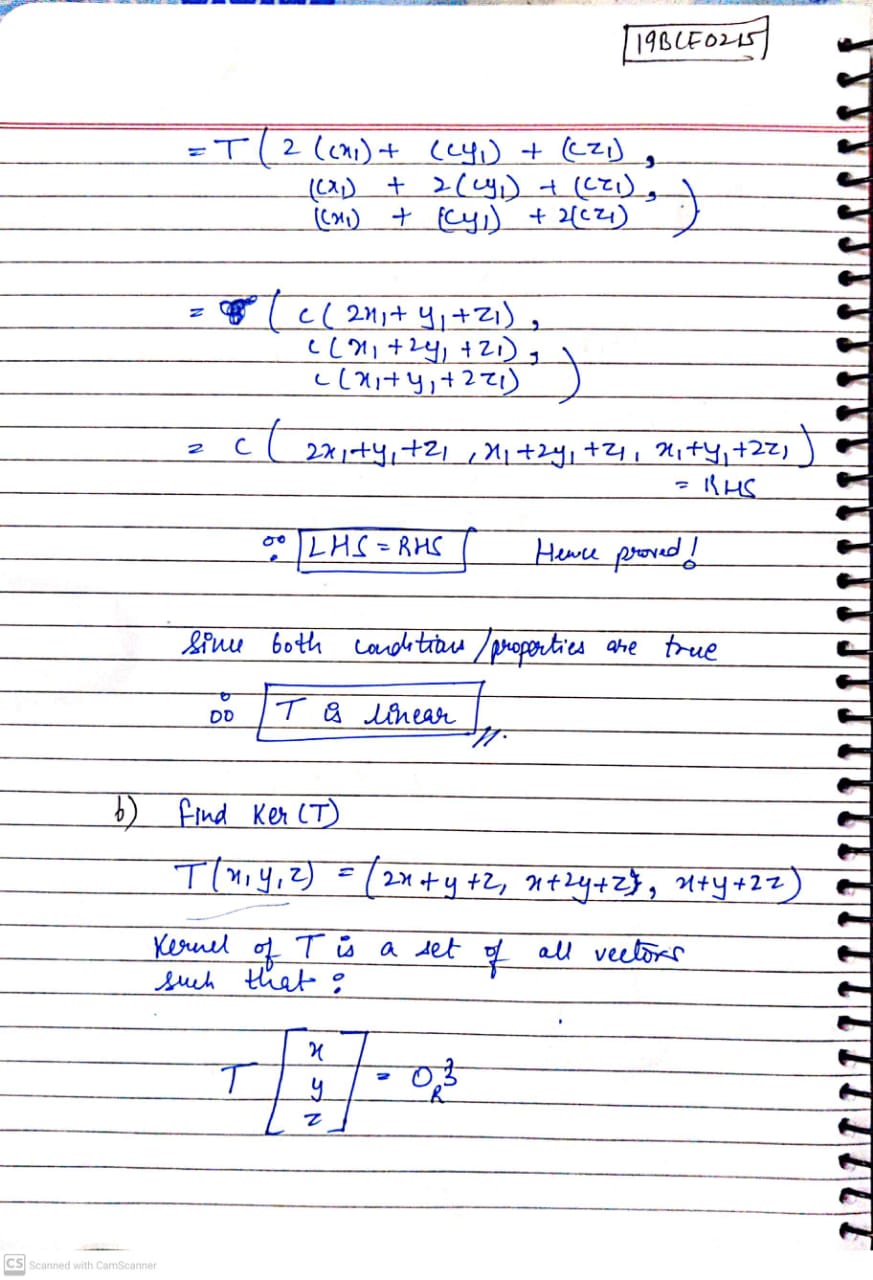 19BCE0215
= T ( 2 (cx₁) + (cy₁) + (cz₁) ,
(cx₁) + 2(cy₁) + (cz₁) ,
(cx₁) + (cy₁) + 2(cz₁) )
= ( c( 2x₁+ y₁+z₁) ,
c (x₁ +2y₁ +z₁) ,
c (x₁+y₁+2z₁) )
= c ( 2x₁+y₁+z₁ , x₁+2y₁+z₁ , x₁+y₁+2z₁ )
= RHS
∴ LHS = RHS Hence proved!
Since both conditions / properties are true
∴ T is linear //.
b) Find Ker (T)
T(x, y, z) = (2x + y + z, x+2y+z, x+y+2z)
Kernel of T is a set of all vectors
such that :
T [ x
y
z ] = 0_R³
CS Scanned with CamScanner